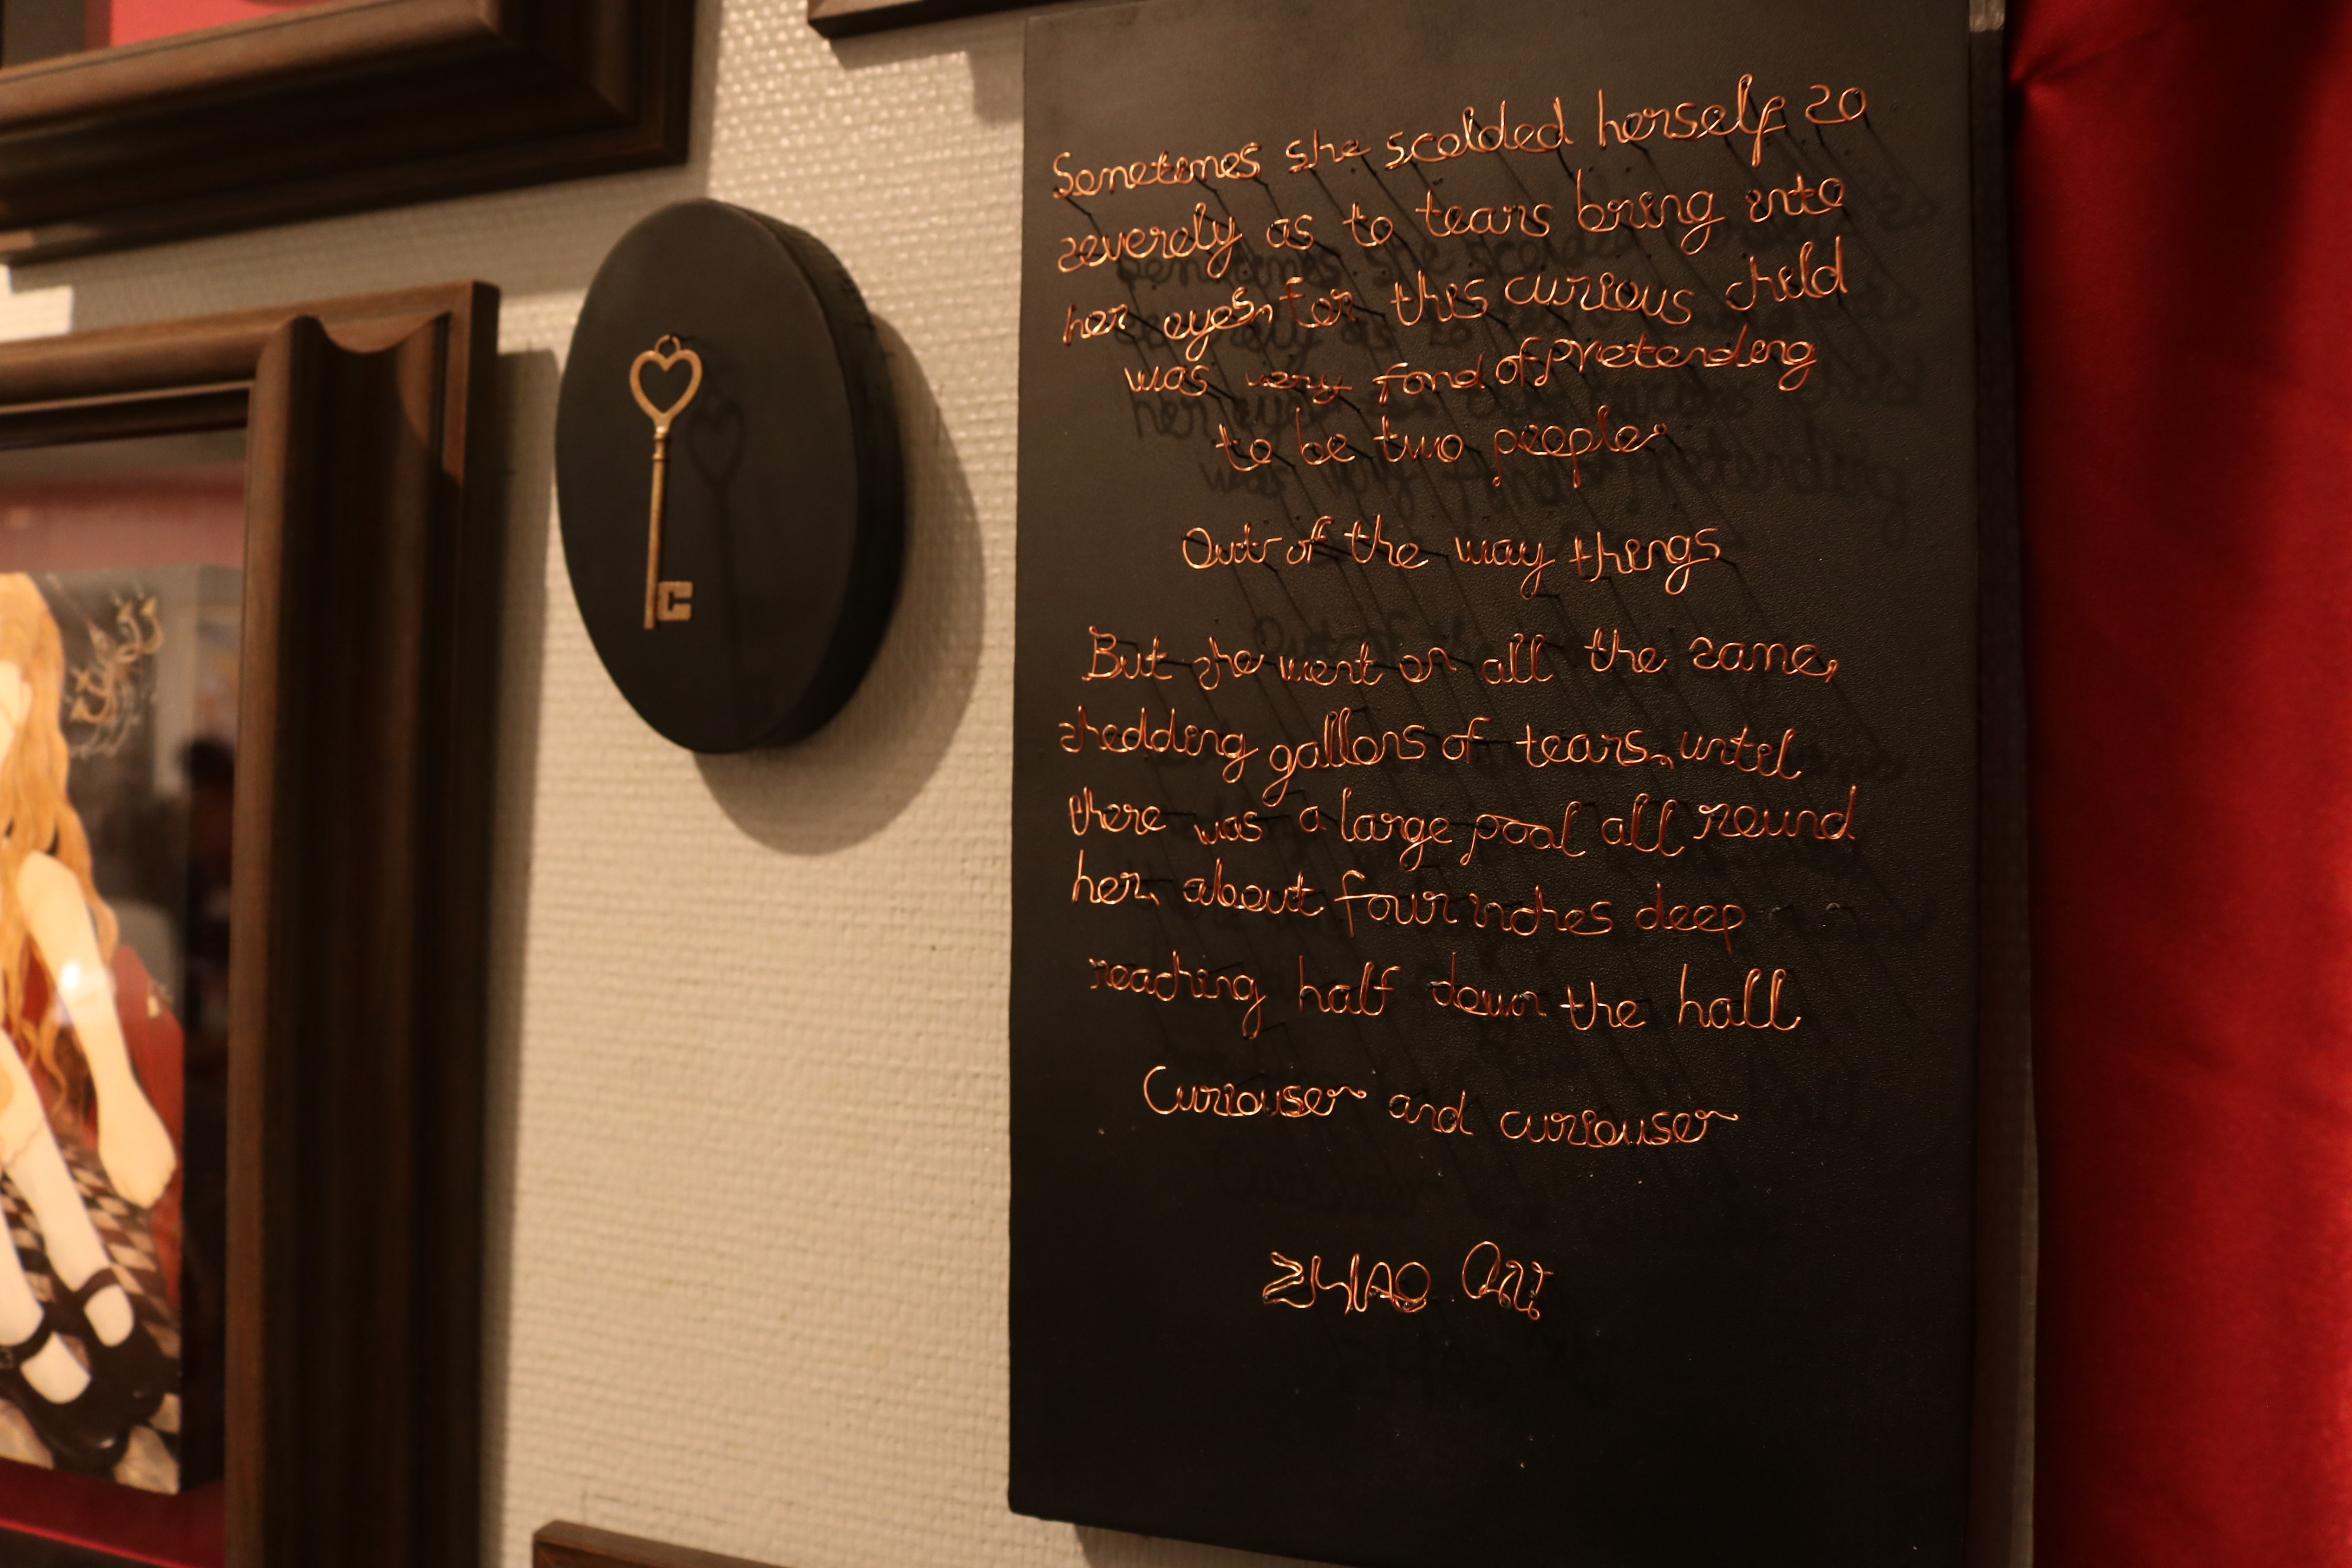 Sometimes she scolded herself so
severely as to tears bring into
her eyes, for this curious child
was very fond of pretending
to be two people
Out of the way things
But she went on all the same,
shedding gallons of tears, until
there was a large pool all round
her, about four inches deep
reaching half down the hall
Curiouser and curiouser
ZHAO